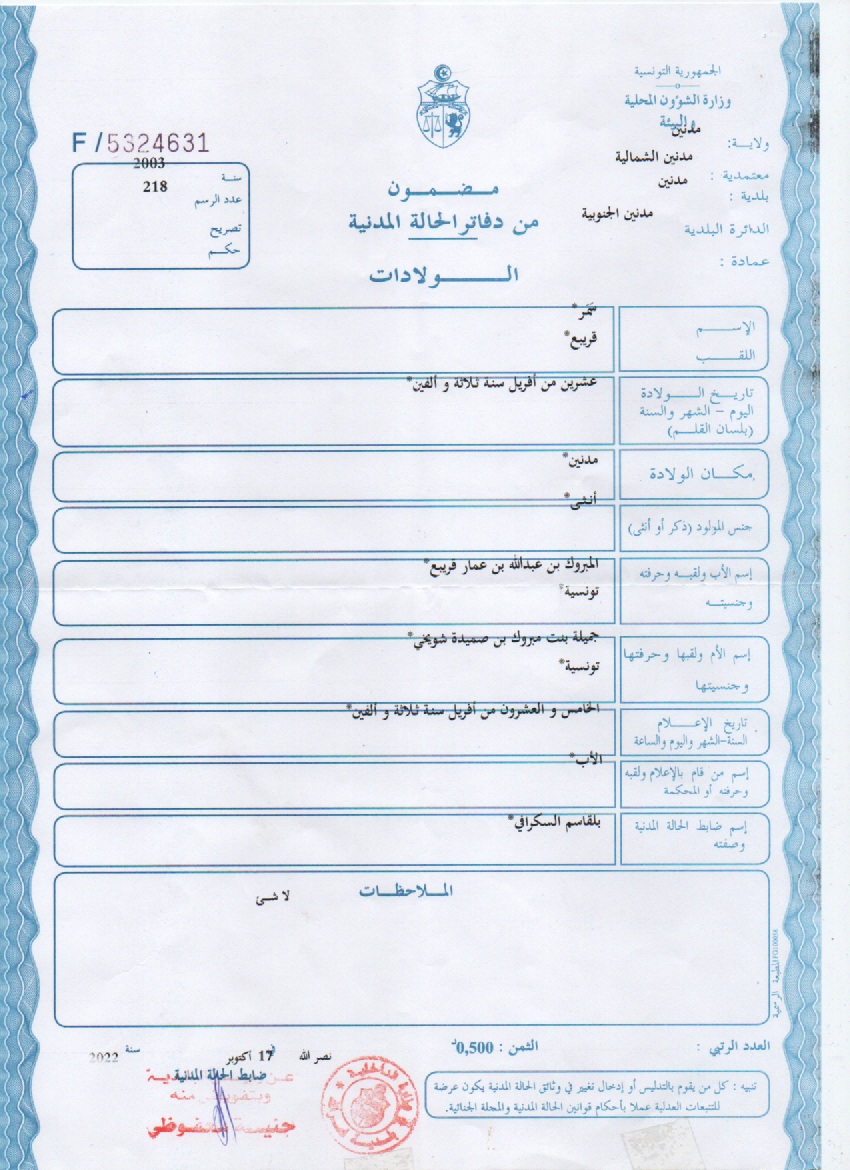 الجمهورية التونسية
وزارة الشؤون المحلية
والبيئة
ولايـــة: مدنين
معتمدية : مدنين الشمالية
بلدية : مدنين
الدائرة البلدية مدنين الجنوبية
عمادة :
F / 5324631
سنة 2003
عدد الرسم 218
تصريح
حكـم
مـضـمـون
من دفاتر الحالة المدنية
الــولادات
الإســم سَمَر*
اللقـب قريبع*
تاريـخ الــولادة عشرين من أفريل سنة ثلاثة و ألفين*
اليوم – الشهر والسنة
(بلسان القلـم)
مكـان الولادة مدنين*
جنس المولود (ذكر أو أنثى) أنثى*
إسم الأب ولقبـه وحرفته المبروك بن عبدالله بن عمار قريبع*
وجنسيتـه تونسية*
إسم الأم ولقبها وحرفتها جميلة بنت مبروك بن صميدة شويخي*
وجنسيتها تونسية*
تاريخ الإعـــلام الخامس و العشرون من أفريل سنة ثلاثة و ألفين*
السنة-الشهر واليوم والساعة
إسم من قام بالإعلام ولقبه الأب*
وحرفته أو المحكمة
إسم ضابط الحالة المدنية بلقاسم السكرافي*
وصفته
المـلاحظـات
لا شئ
العدد الرتبي :
الثمن : 0,500د
نصر الله في 17 أكتوبر سنة 2022
ضابط الحالة المدنية
وبتفويض منه
تنبيه : كل من يقوم بالتدليس أو إدخال تغيير في وثائق الحالة المدنية يكون عرضة
للتتبعات العدلية عملا بأحكام قوانين الحالة المدنية والمجلة الجنائية.